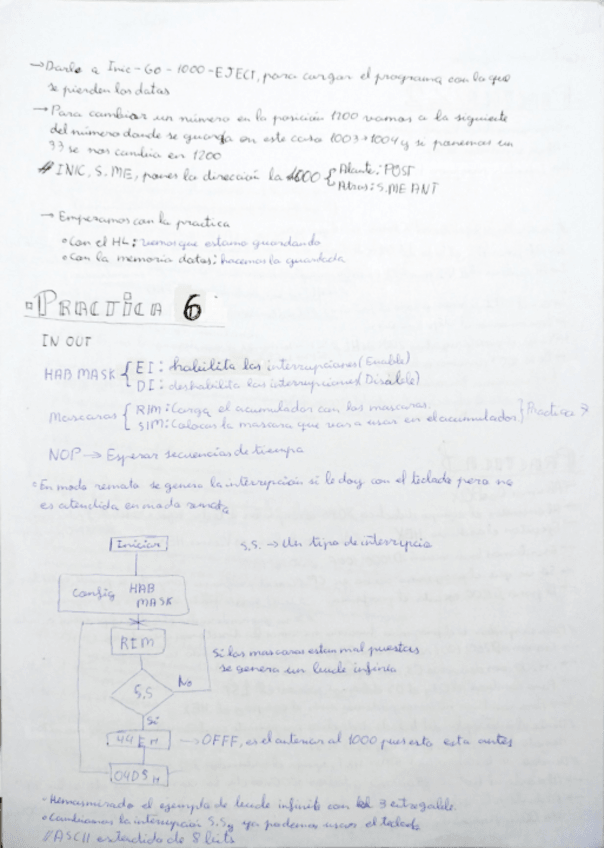 → Darle a Inic-Go-1000-EJECT, para cargar el programa con lo que
se pierden los datos
→ Para cambiar un número en la posición 1200 vamos a la siguiente
del número donde se guarda en este caso 1003→1004 y si ponemos un
33 se nos cambia en 1200
# INIC, S.ME, pones la dirección la 1000 { Alante: POST
Atras: S.ME ANT
→ Empezamos con la practica
• Con el HL: vemos que estamo guardando
• Con la memoria datos: hacemos lo guardada
▫PRACTICA 6
IN OUT
HAB MASK { EI: habilita las interrupciones (Enable)
DI: deshabilita las interrupciones (Disable)
Mascaras { RIM: Carga el acumulador con las mascaras.
SIM: Colocas la mascara que vas a usar en el acumulador } Practica 7
NOP → Esperar secuencias de tiempo
• En modo remoto se genera la interrupción si le doy con el teclado pero no
es atendida en modo remoto
Iniciar
5,5. → Un tipo de interrupcio
Config HAB
MASK
RIM
Si las mascaras estan mal puestas
se genera un bucle infinio
5,5
No
Si
44E H → OFFF, es el anterior al 1000 puesto esta antes
04D5 H
• Hemos mirado el ejemplo de bucle infinito con el 3 entregable.
• Cambiamos la interrupción 5.5 y ya podemos usar el teclado
// ASCII extendido de 8 bits